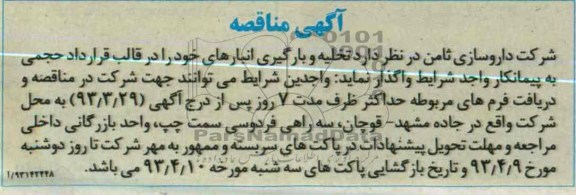 آگهی مناقصه
شرکت داروسازی ثامن در نظر دارد تخلیه و بارگیری انبارهای خود را در قالب قرارداد حجمی
به پیمانکار واجد شرایط واگذار نماید: واجدین شرایط می توانند جهت شرکت در مناقصه و
دریافت فرم های مربوطه حداکثر ظرف مدت ۷ روز پس از درج آگهی (۹۳/۳/۲۹) به محل
شرکت واقع در جاده مشهد- قوچان، سه راهی فردوسی سمت چپ، واحد بازرگانی داخلی
مراجعه و مهلت تحویل پیشنهادات در پاکت های سربسته و ممهور به مهر شرکت تا روز دوشنبه
مورخ ۹۳/۴/۹ و تاریخ بازگشایی پاکت های سه شنبه مورخه ۹۳/۴/۱۰ می باشد.
۱/۹۳۱۴۲۴۴۸
ParsNamadData